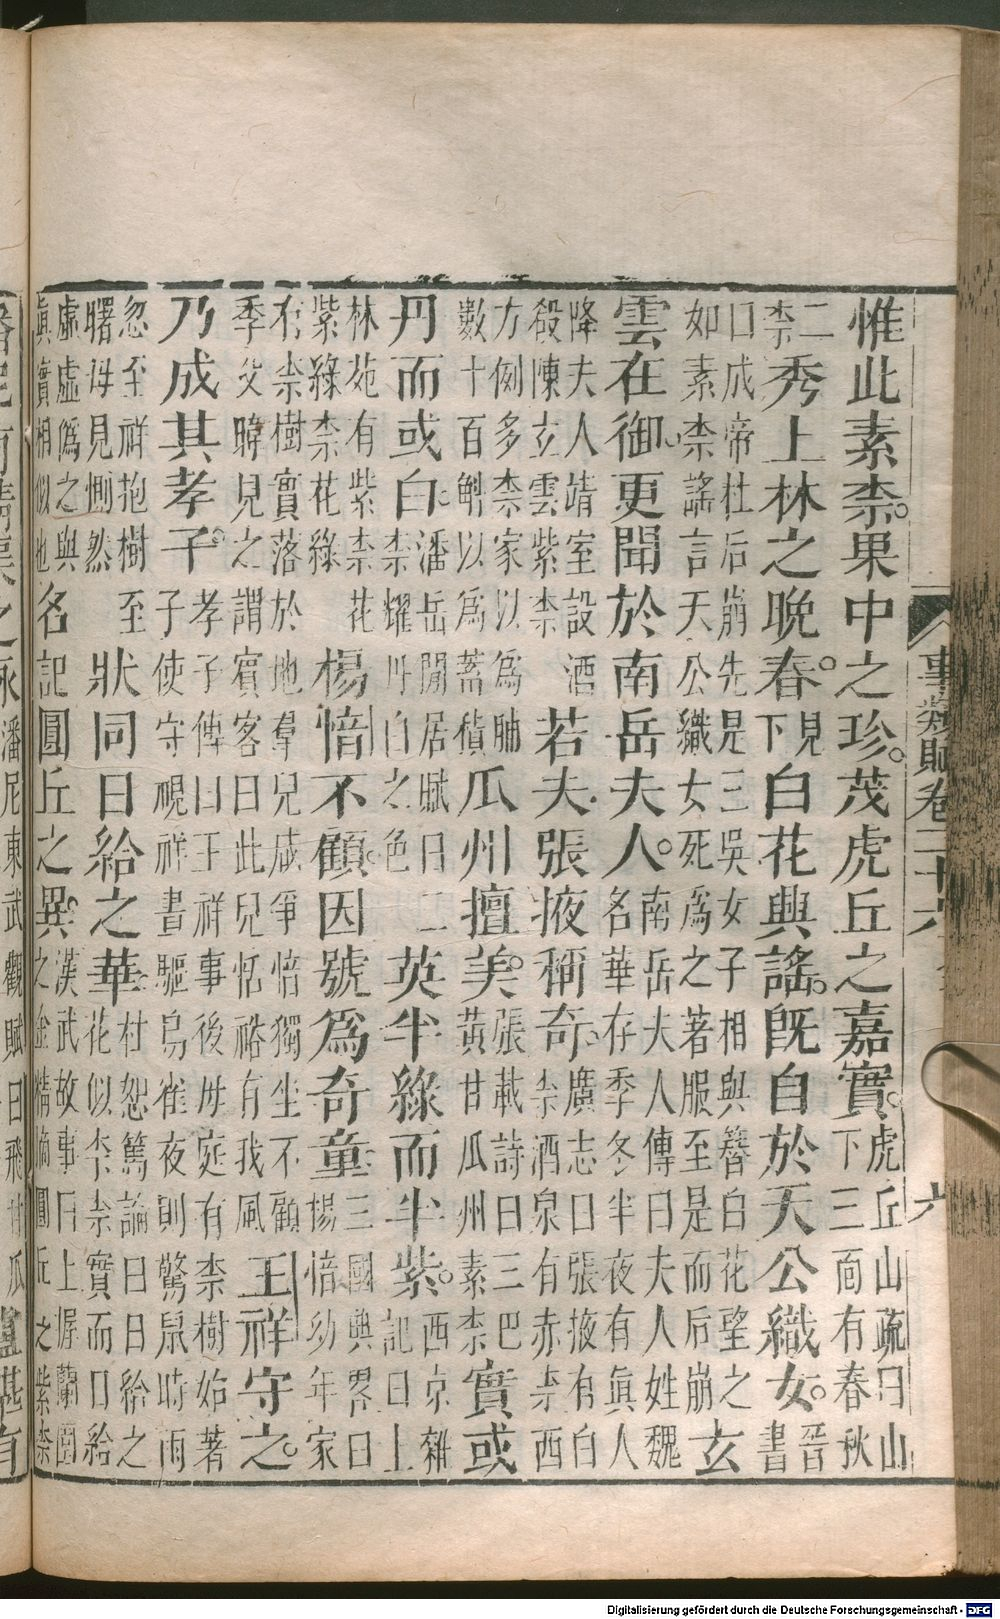 事類賦卷二十六
六
惟此素柰。果中之珍。茂虎丘之嘉實。
虎丘山疏曰山
下三面有春秋
二
柰
秀上林之晚春。
見
下
白花與謠。既自於天公織女。
晉
書
曰成帝杜后崩先是三吳女子相與簪白花望之
如素柰謠言天公織女死為之著服至是而后崩
玄
雲在御。更聞於南岳夫人。
南岳夫人傳曰夫人姓魏
名華存季冬半夜有真人
降夫人靖室設酒
殽陳玄雲紫柰
若夫張掖稱奇。
廣志曰張掖有白
柰酒泉有赤柰西
方例多柰家以為脯
數十百斛以為蓄積
瓜州擅美。
張載詩曰三巴
黃甘瓜州素柰
實或
丹而或白。
潘岳閒居賦曰二
柰耀丹白之色
英半綠而半紫。
西京雜
記曰上
林苑有紫柰花
紫綠柰花綠
楊愔不顧。因號為奇童。
三國典畧曰
楊愔幼年家
有柰樹實落於地羣兒咸爭愔獨坐不顧
季父暐見之謂賓客曰此兒恬裕有我風
王祥守之。
乃成其孝子。
孝子傳曰王祥事後母庭有柰樹始著
子使守視祥晝驅鳥雀夜則驚鼠時雨
忽至祥抱樹至
曙母見惻然
狀同日給之華。
杜恕篤論曰日給之
花似李柰實而日給
虛虛偽之與
真實相似也
名記圓丘之異。
漢武故事曰上握蘭園
之金精摘圓丘之紫柰
潘尼東武觀賦曰飛甘瓜
Digitalisierung gefördert durch die Deutsche Forschungsgemeinschaft - DFG